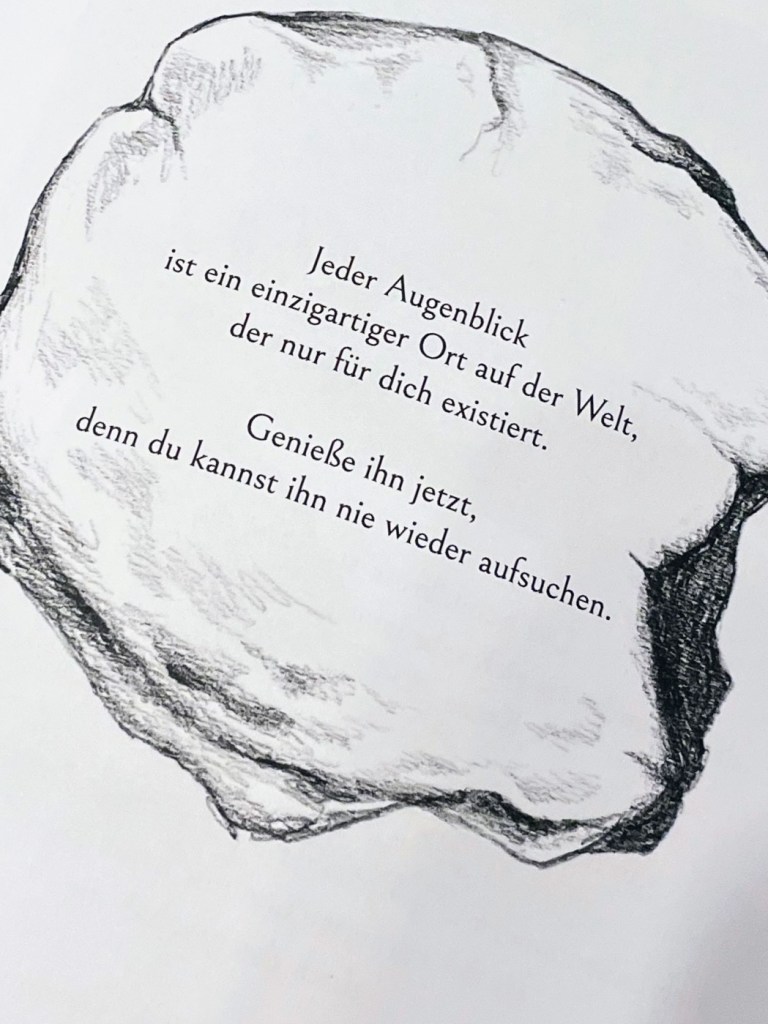 Jeder Augenblick
ist ein einzigartiger Ort auf der Welt,
der nur für dich existiert.
Genieße ihn jetzt,
denn du kannst ihn nie wieder aufsuchen.